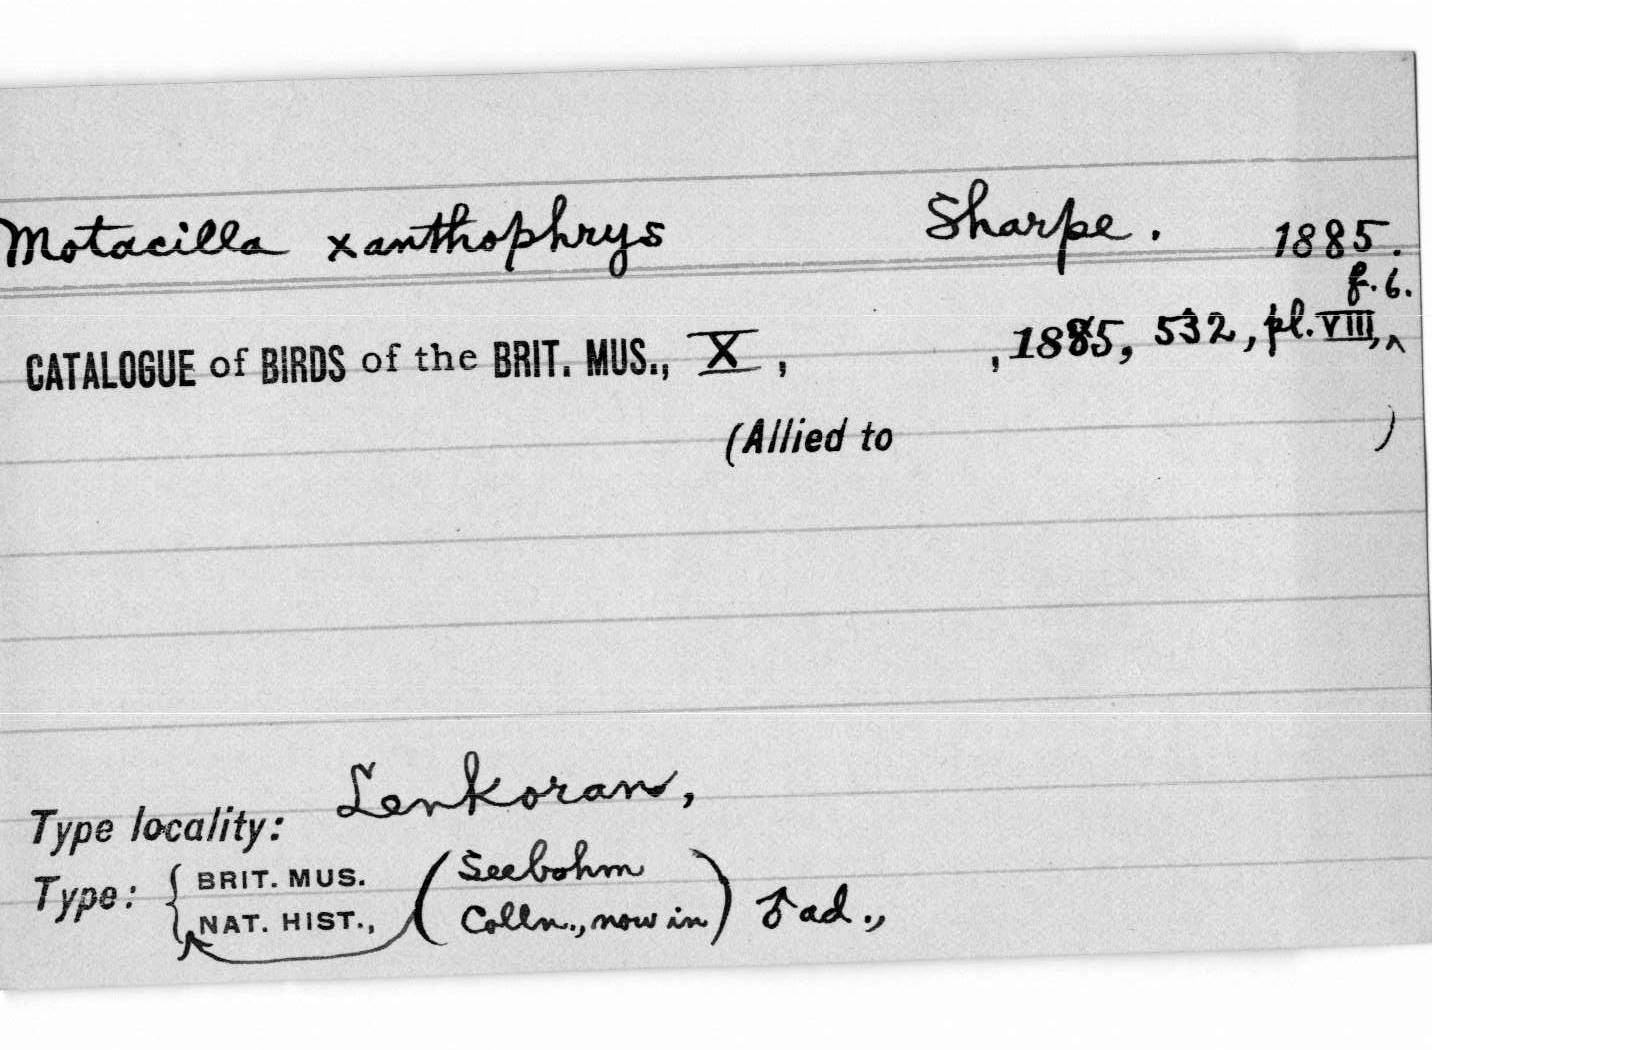 Motacilla xanthophrys Sharpe. 1885.
f. 6.
CATALOGUE of BIRDS of the BRIT. MUS., X, , 1885, 532, pl. VIII, ^
(Allied to )
Type locality: Lenkoran,
Type: { BRIT. MUS. NAT. HIST., (Seebohm Colln., now in) ♂ ad.,